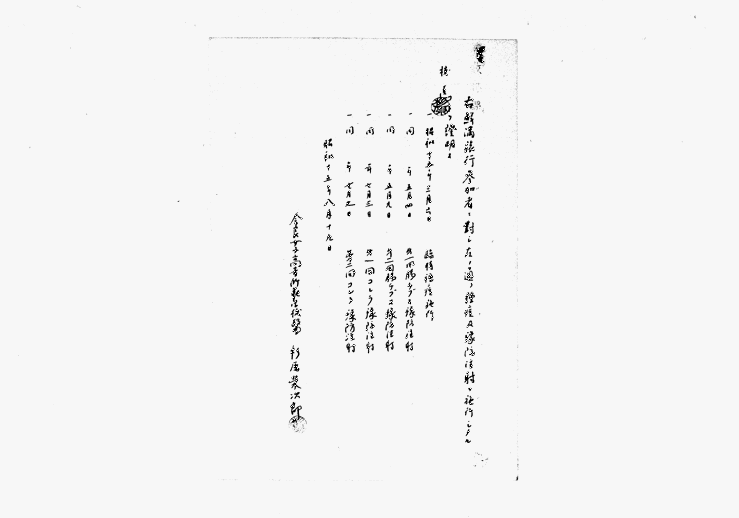 右鮮満旅行参加者ニ対シ左ノ通り種痘及予防注射ヲ施行シタル
ヲ証明ス
一 昭和十五年三月六日 臨時種痘施行
一 同 年五月四日 第一回腸チブス予防注射
一 同 年五月九日 第二回腸チブス予防注射
一 同 年七月三日 第一回コレラ予防注射
一 同 年七月九日 第二回コレラ予防注射
昭和十五年八月十九日
奈良女子高等師範学校医 新屋 次郎